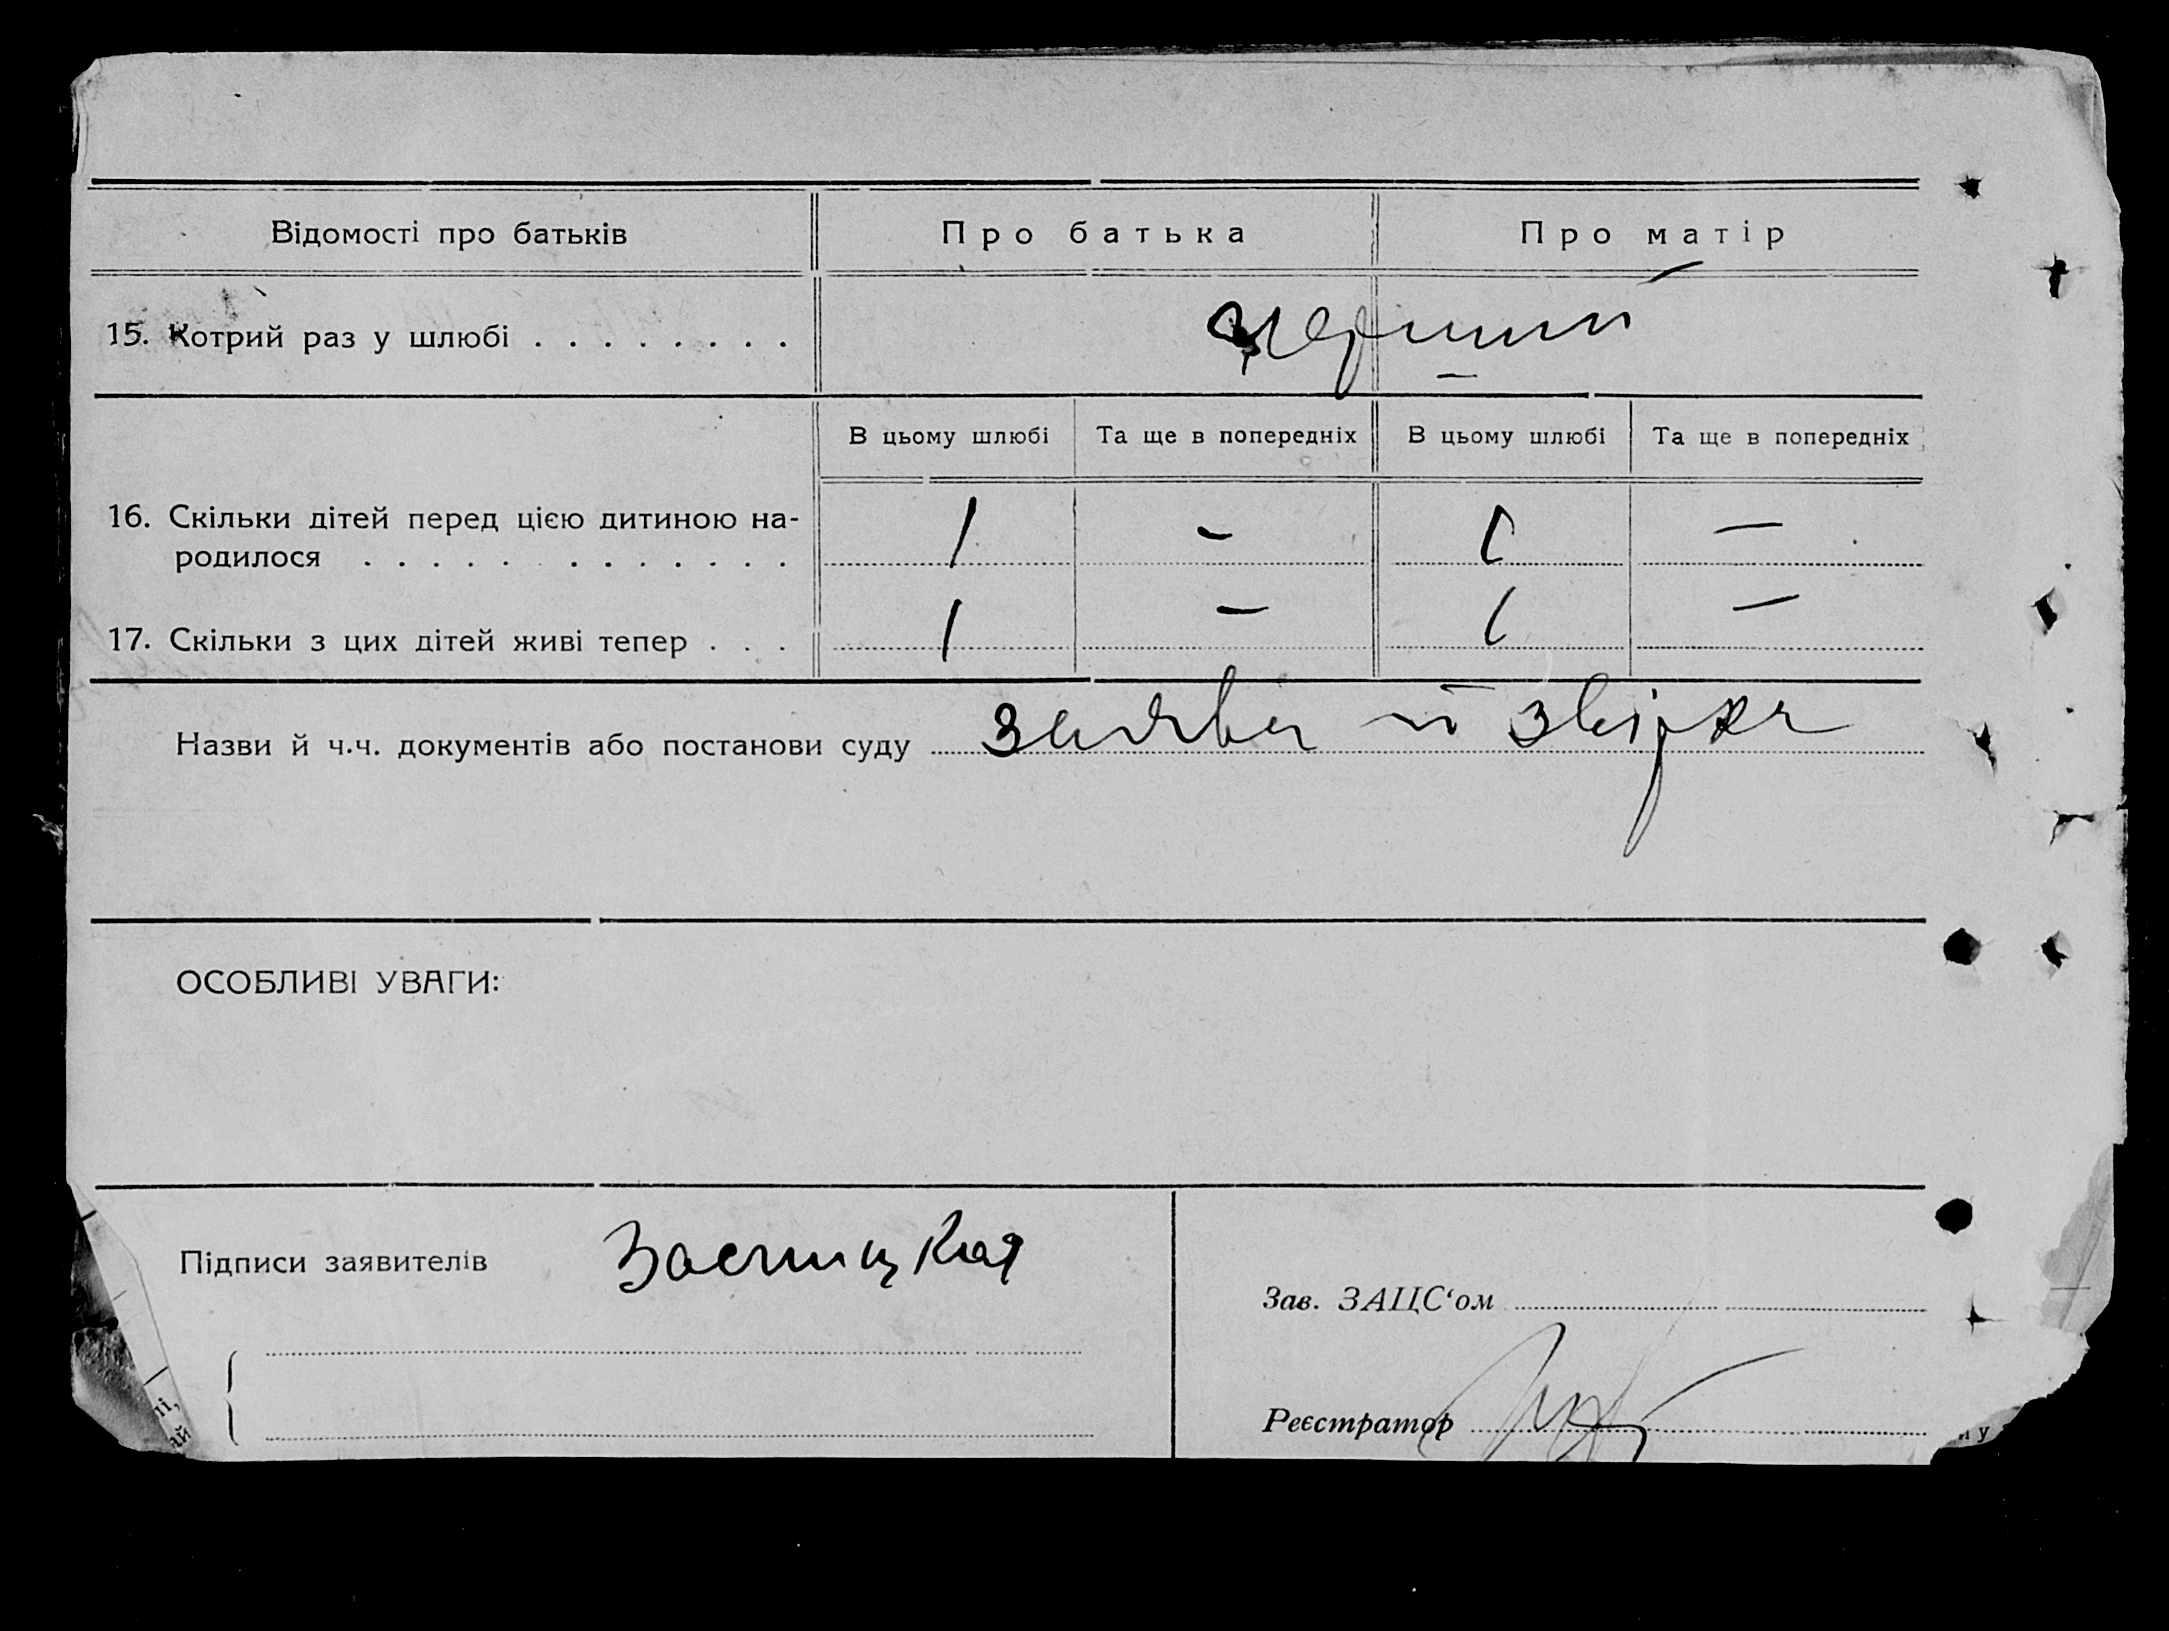 Відомості про батьків Про батька Про матір
15. Котрий раз у шлюбі . . . . . . . . перший
В цьому шлюбі Та ще в попередніх В цьому шлюбі Та ще в попередніх
16. Скільки дітей перед цією дитиною на-
родилося . . . . . . . . . . . . 1 – 1 –
17. Скільки з цих дітей живі тепер . . . 1 – 1 –
Назви й ч.ч. документів або постанови суду заява й звірка
ОСОБЛИВІ УВАГИ:
Підписи заявителів
Зав. ЗАЦС‘ом
Реєстратор